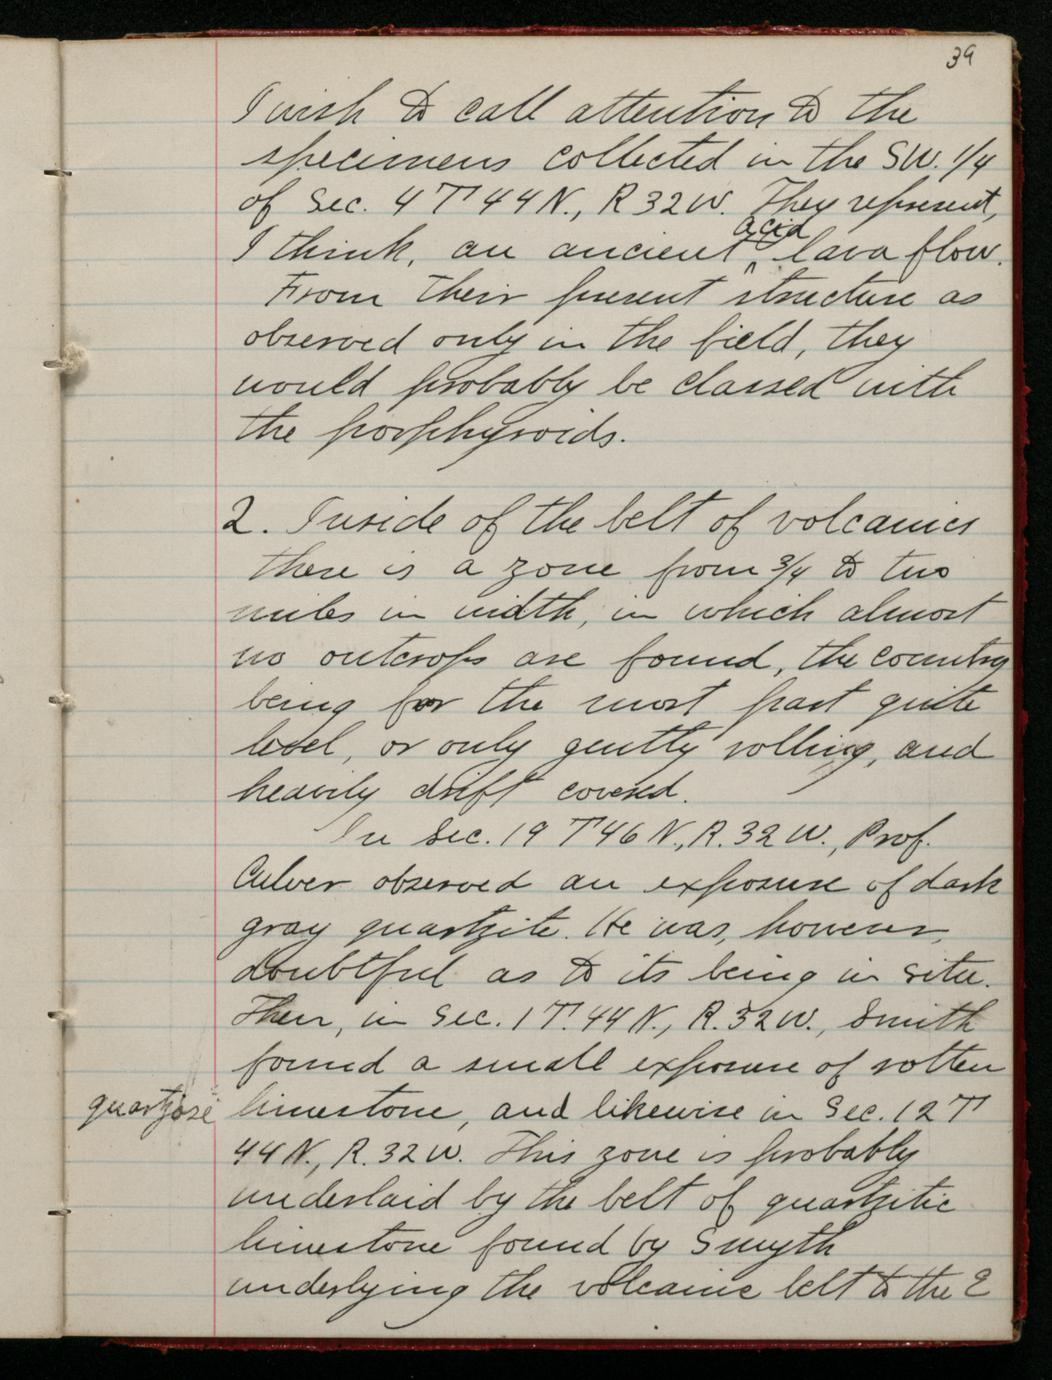 39
I wish to call attention to the
specimens collected in the SW. 1/4
of Sec. 4 T 44 N., R 32 W. They represent,
I think, an ancient ^acid lava flow.
From their present structure as
observed only in the field, they
would probably be classed with
the porphyroids.
2. Inside of the belt of volcanics
there is a zone from 3/4 to two
miles in width, in which almost
no outcrops are found, the country
being for the most part quite
level, or only gently rolling, and
heavily drift covered.
In Sec. 19 T 46 N., R. 32 W., Prof.
Culver observed an exposure of dark
gray quartzite. He was, however,
doubtful as to its being in situ.
Then, in Sec. 1 T. 44 N., R. 32 W., Smith
found a small exposure of rotten
quartzose limestone, and likewise in Sec. 12 T
44 N., R. 32 W. This zone is probably
underlaid by the belt of quartzitic
limestone found by Smyth
underlying the volcanic belt to the E